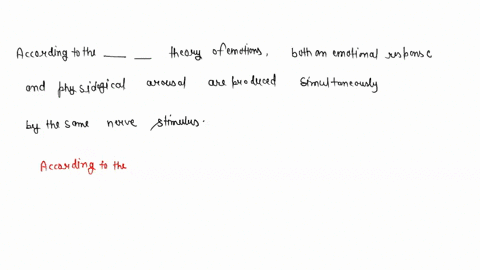 According to the ___ __ theory of emotions, both an emotional response
and physiological arousal are produced simultaneously
by the same nerve stimulus.
According to the